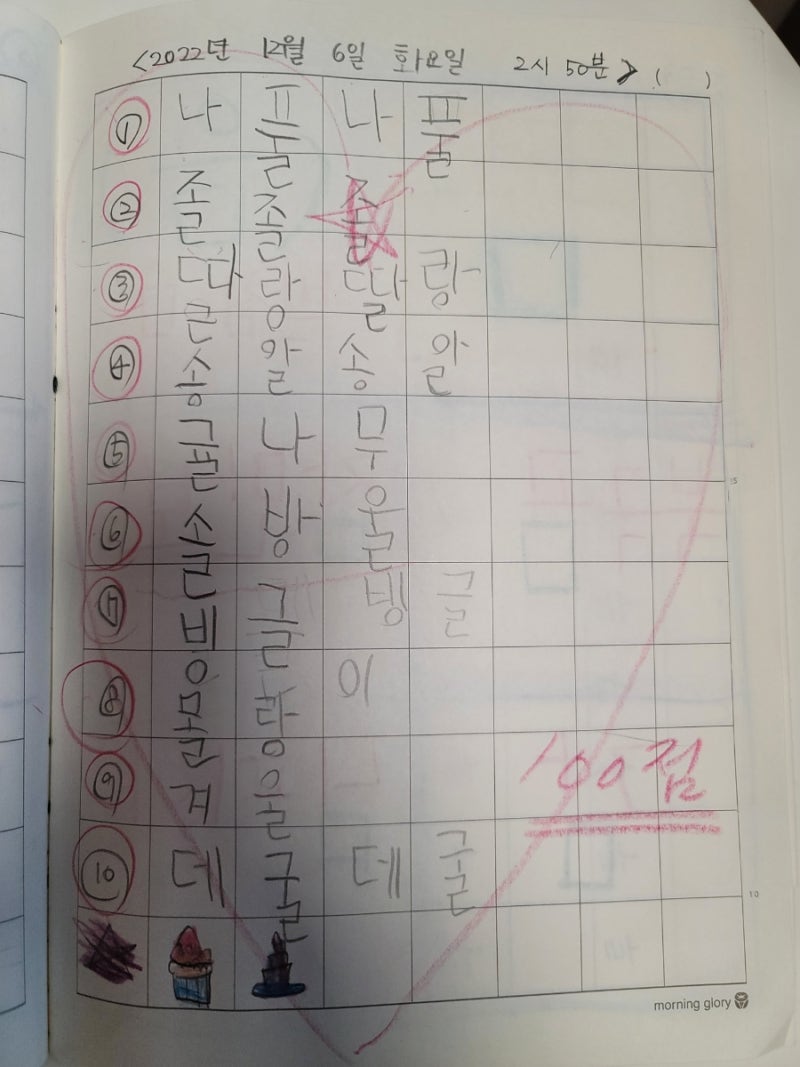 <2022년 12월 6일 화요일 2시 50분> ( )
① 나풀나풀
② 졸졸졸
③ 딸랑딸랑
④ 송알송알
⑤ 귤나무
⑥ 솔방울
⑦ 빙글빙글
⑧
⑨ 겨울
100점
⑩ 데굴데굴
10
morning glory